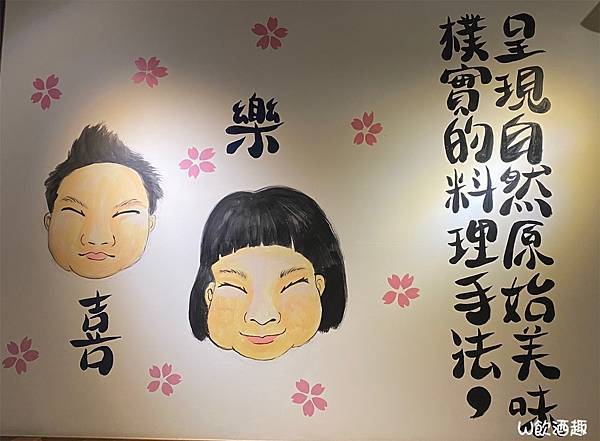 呈現自然原始美味
樸實的料理手法，
樂
喜
W飲酒趣